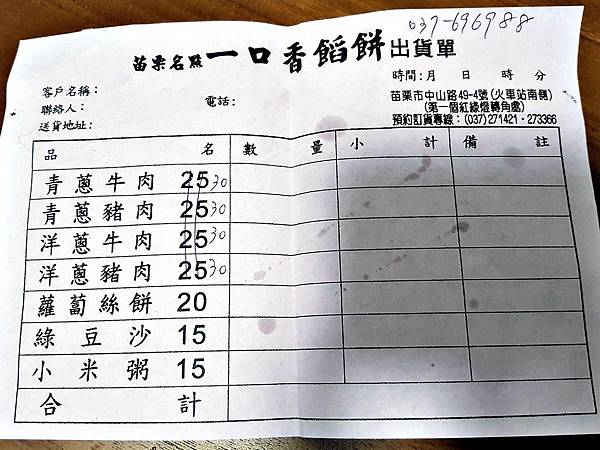 037-696988
苗栗名點一口香餡餅出貨單
時間：月 日 時 分
客戶名稱：
聯絡人： 電話：
送貨地址：
苗栗市中山路49-4號(火車站南側)
(第一個紅綠燈轉角處)
預約訂貨專線：(037)271421・273366
品名 數量 小計 備註
青蔥牛肉 25 30
青蔥豬肉 25 30
洋蔥牛肉 25 30
洋蔥豬肉 25 30
蘿蔔絲餅 20
綠豆沙 15
小米粥 15
合計